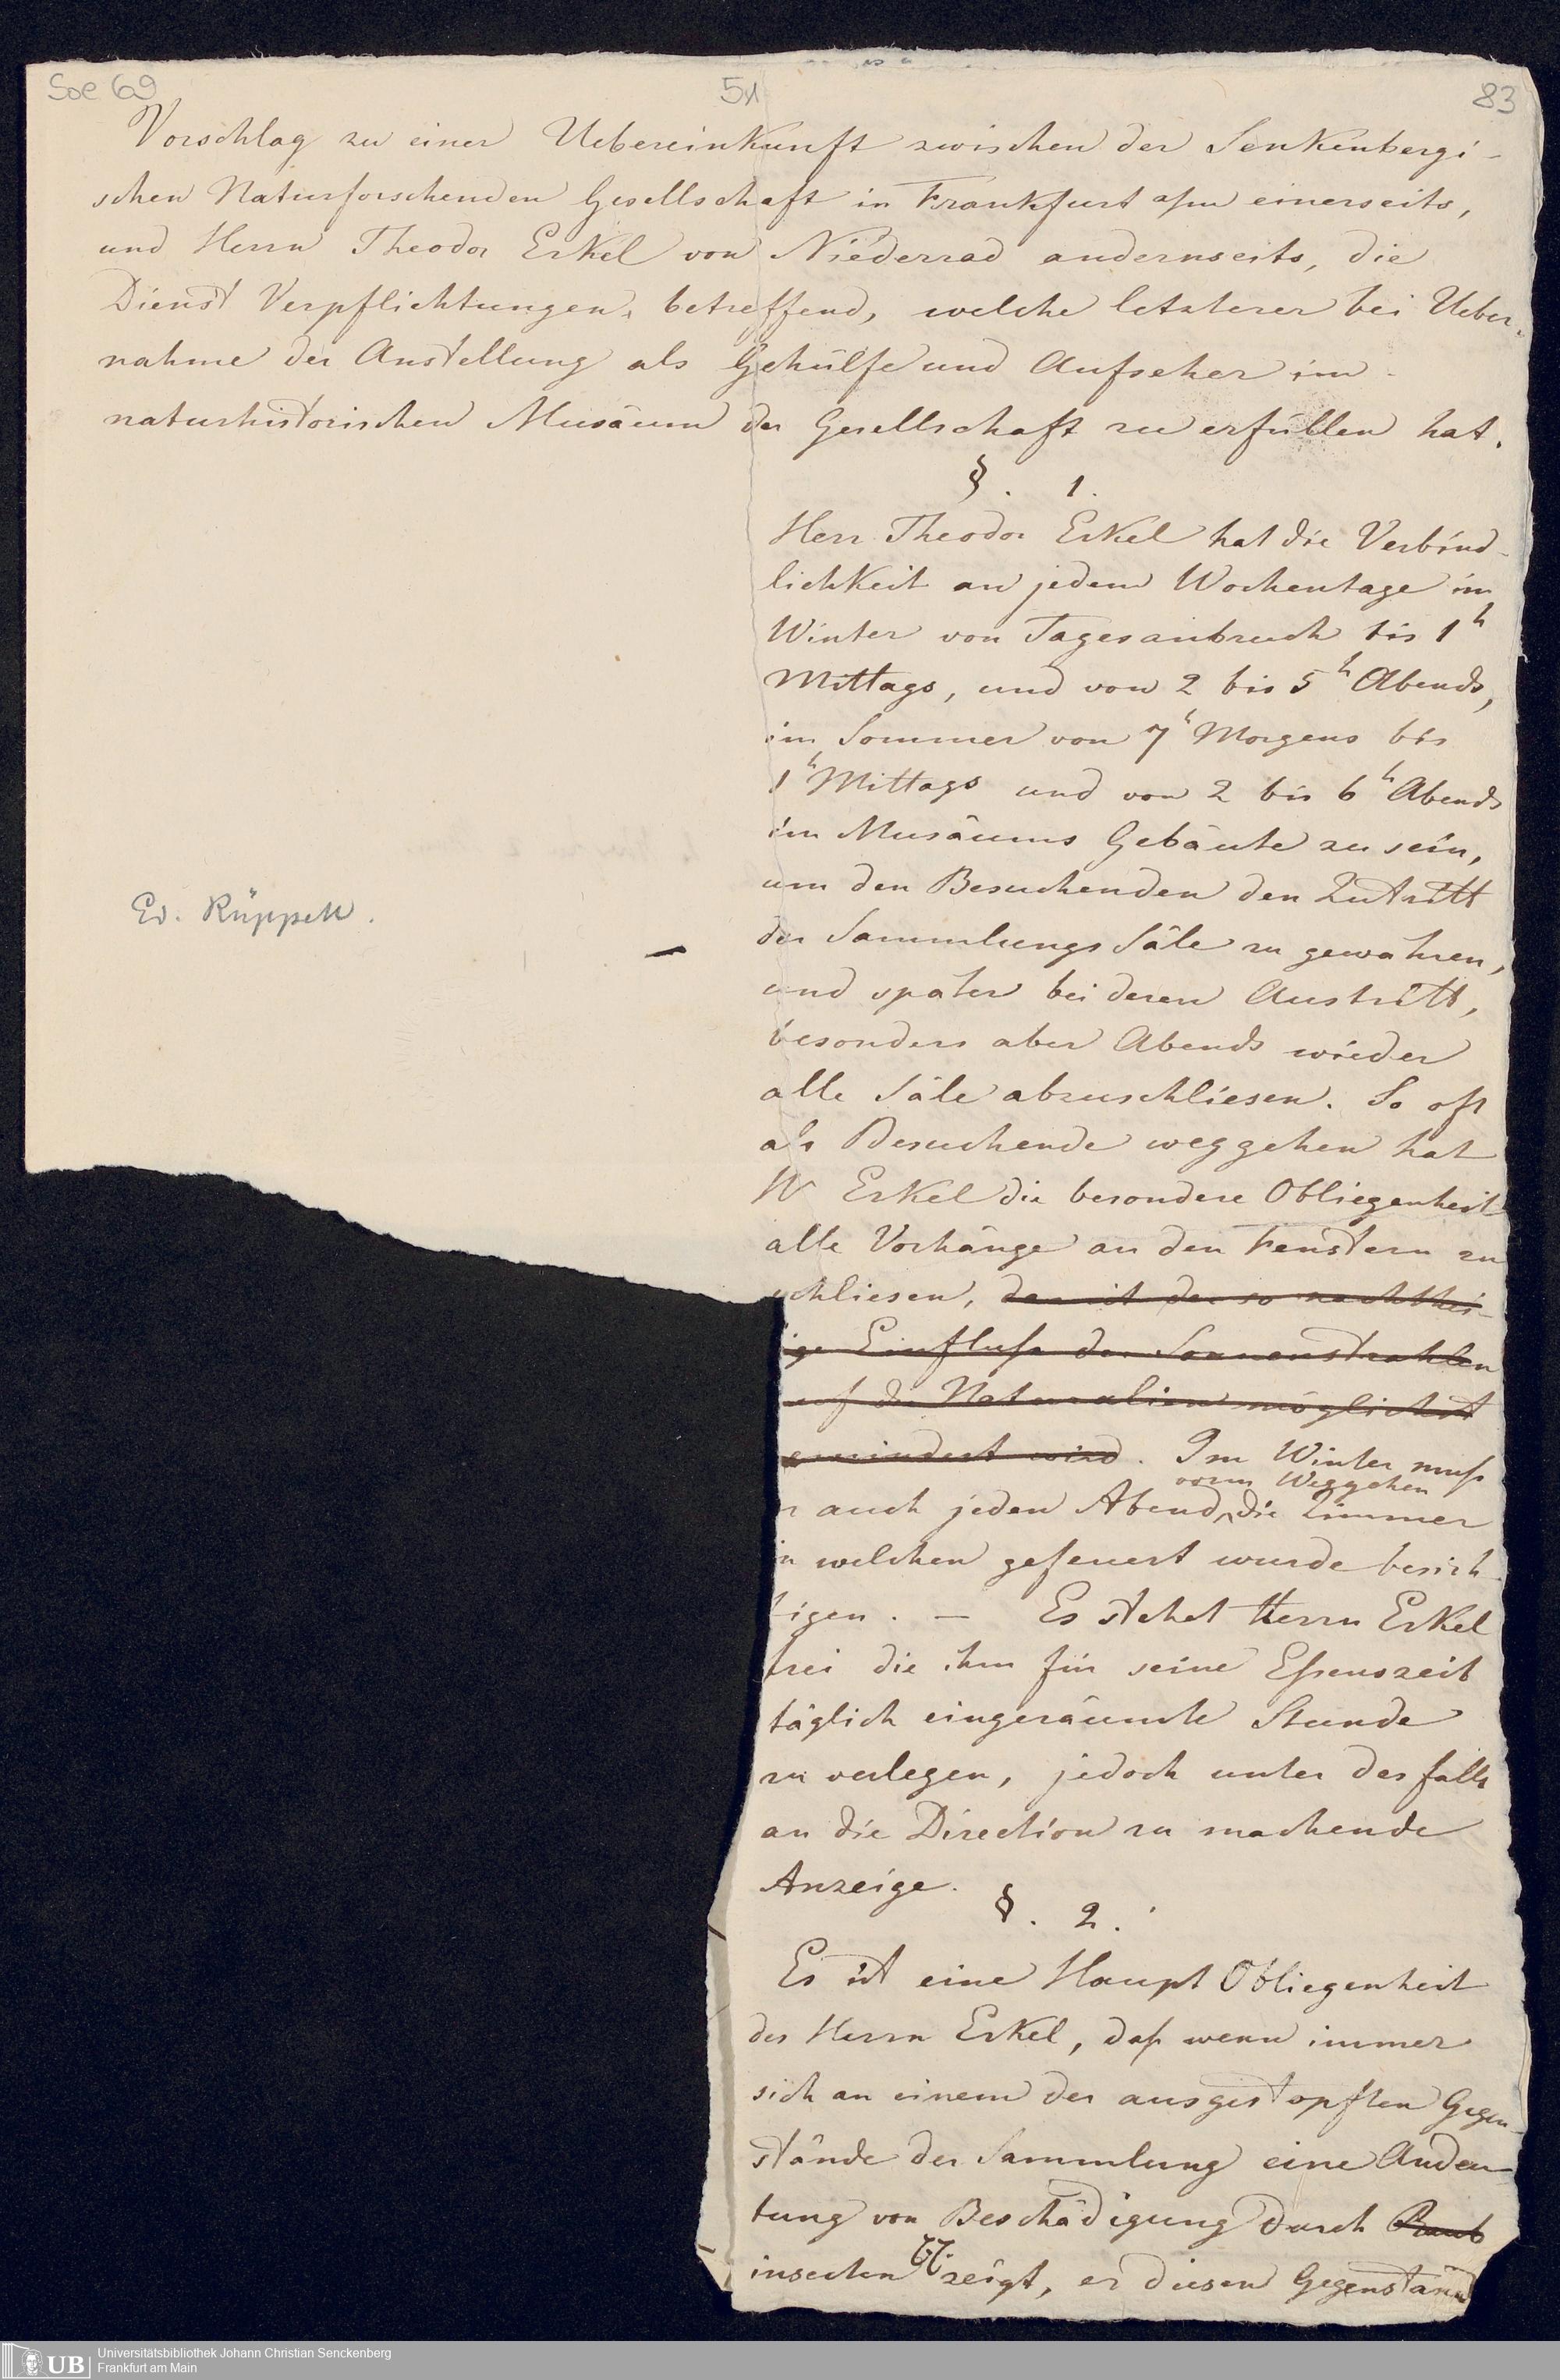 Soe 69
51
83
Vorschlag zu einer Uebereinkunft zwischen der Senkenbergi-
schen Naturforschenden Gesellschaft in Frankfurt a/m einerseits,
und Herrn Theodor Erkel von Niederrad andernseits, die
Dienst Verpflichtungen, betreffend, welche letzterer bei Ueber-
nahme der Anstellung als Gehülfe und Aufseher im
naturhistorischen Musäum der Gesellschaft zu erfüllen hat.
§. 1.
Herr Theodor Erkel hat die Verbind-
lichkeit an jedem Wochentage im
Winter von Tagesanbruch bis 1h
Mittags, und von 2 bis 5h Abends,
im Sommer von 7h Morgens bis
1h Mittags und von 2 bis 6h Abends
im Musäums Gebäute zu sein,
um den Besuchenden den Zutritt
der Sammlungs Säle zu gewähren,
Ed. Rüppell.
und später bei deren Austritt,
besonders aber Abends wieder
alle Säle abzuschliesen. So oft
als Besuchende weggehen hat
Hr Erkel die besondere Obliegenheit
alle Vorhänge an den Fenstern zu
schliesen, damit der so nachthei-
ige Einfluss der Sonnenstrahlen
auf die Naturalien möglichst
emindert wird. Im Winter muss
vorm Weggehen
r auch jeden Abend, die Zimmer
in welchen gefeuert wurde besich-
tigen. — Es stehet Herrn Erkel
frei die ihm für seine Essenszeit
täglich eingeräumte Stunde
zu verlegen, jedoch unter desfalls
an die Direction zu machende
Anzeige.
§. 2.
Es ist eine Haupt Obliegenheit
des Herrn Erkel, dass wenn immer
sich an einem der ausgestopften Gegen-
stände der Sammlung eine Andeu-
tung von Beschädigung durch Raub
insecten zeigt, er diesen Gegenstand
UB
Universitätsbibliothek Johann Christian Senckenberg
Frankfurt am Main